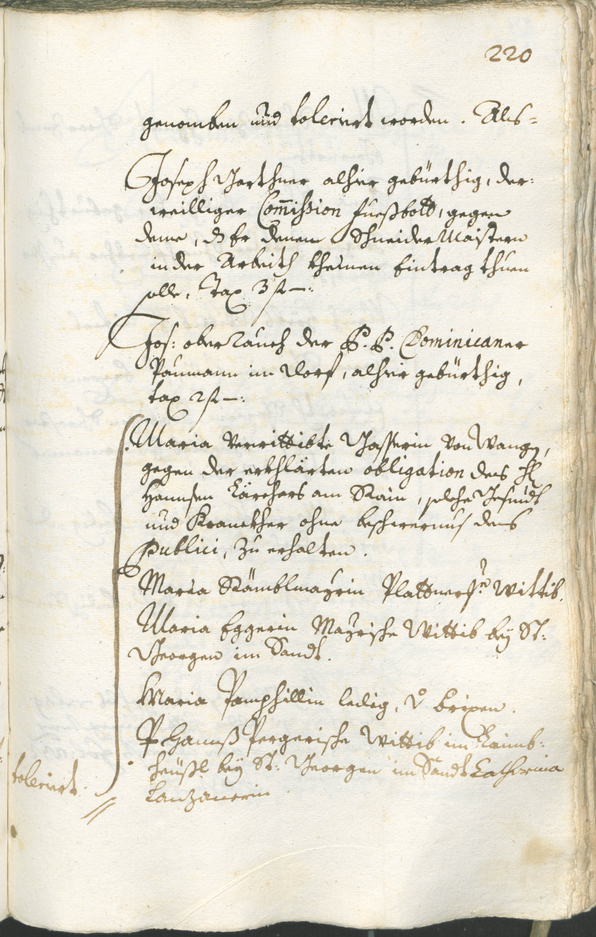 220
genomben und toleriert worden. Als=
Joseph Garthner alhier gebürthig, der:
weilliger Com̄ission fueßbott, gegen
deme, dz Er denen Schneider Maistern
in der Arbeith kheinen Eintrag thuen
solle, Tax 3 f —:
Jos: oberrauch der P. P. Dominicaner
Paumann im Dorf, alhier gebürthig,
tax 2 f —:
Maria verwittibte Gasserin von Wangen,
gegen der erkhlärten obligation des H
Hannsen Kärchers am Rain, solche Gesundt
und Krancker ohne beschwernus des
Publici, zu erhalten.
Maria Kämblmayrin Plattners: Wittib.
Maria Eggerin Mayrische Wittib bey St:
Georgen im Sandt.
Maria Pamphillin ledig, v brixen.
Hannß Pergerische Wittib im Raimb:
heußl bey St: Georgen im Sandt Catharina
Lanzanerin
toleriert.